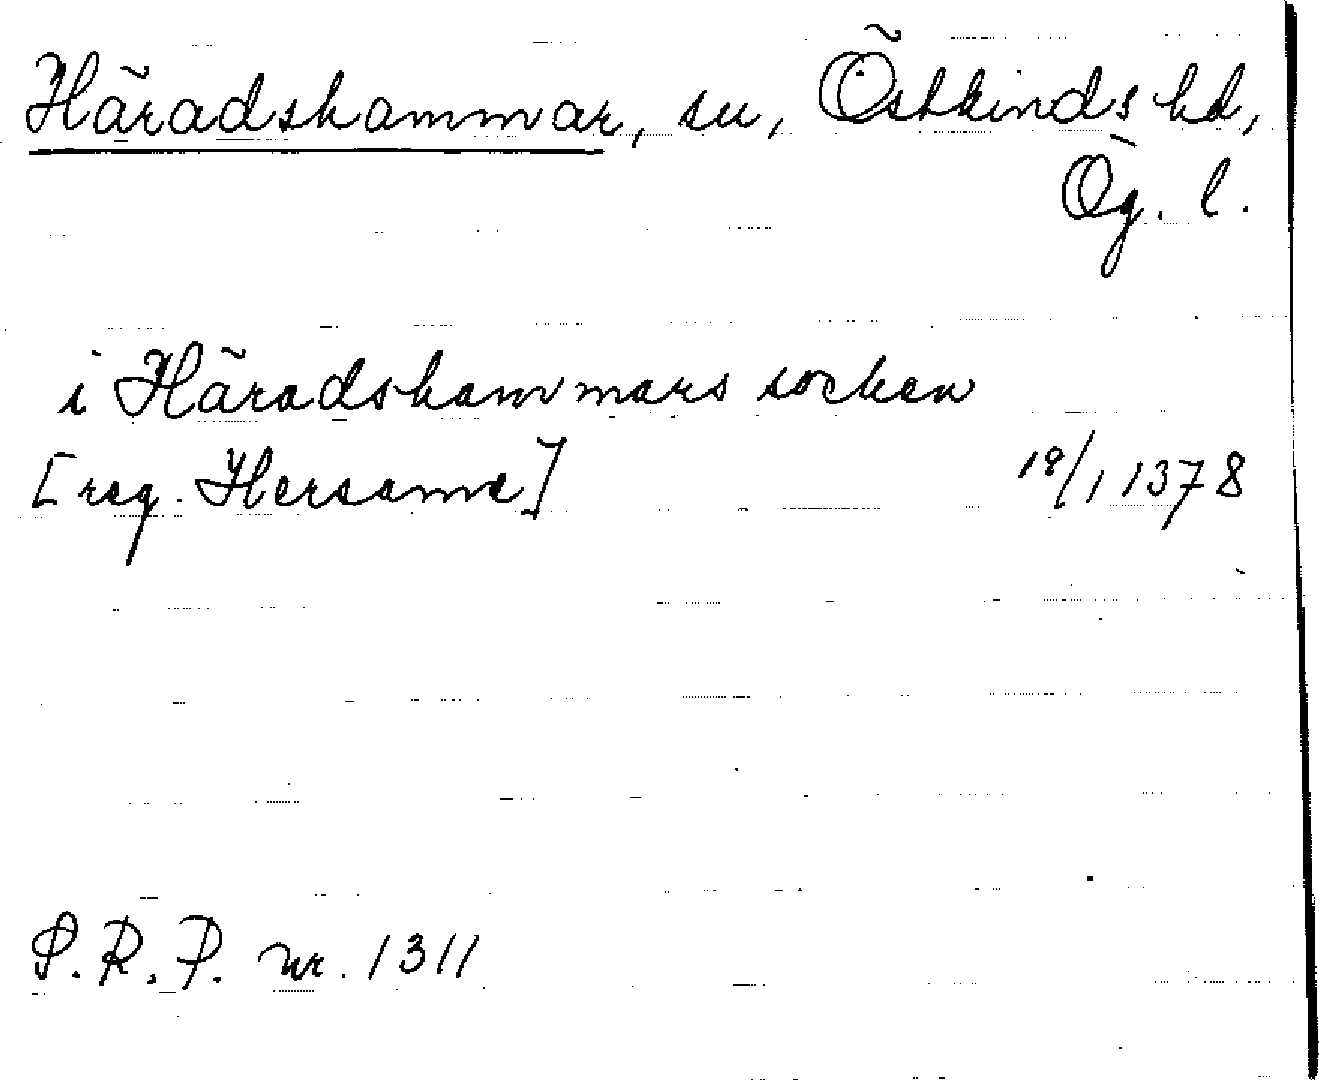 Häradshammar, sn, Östkinds hd,
Ög. l.
i Häradshammars socken
[reg. Hersame] 18/1 1378
S.R.P. nr. 1311